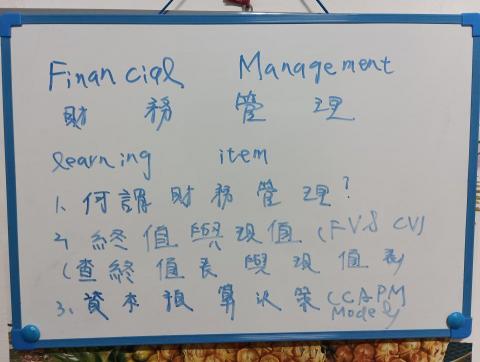 Financial Management
財務管理
learning item
1、何謂財務管理?
2、終值與現值(FV&CV)
(查終值表與現值表)
3、資本預算決策(CCAPM
Model)